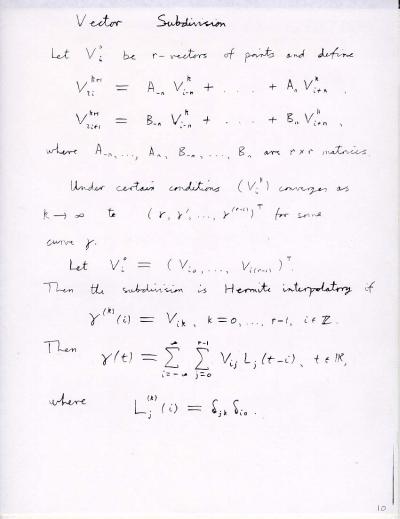 Vector Subdivision
Let V_i^0 be r-vectors of points and define
V_{2i}^{k+1} = A_{-n} V_{i-n}^k + . . . + A_n V_{i+n}^k ,
V_{2i+1}^{k+1} = B_{-n} V_{i-n}^k + . . . + B_n V_{i+n}^k ,
where A_{-n}, ..., A_n, B_{-n}, ..., B_n are r×r matrices.
Under certain conditions (V_i^k) converges as
k → ∞ to (γ, γ', ..., γ^{(r-1)})^T for some
curve γ.
Let V_i^0 = (V_{i0}, ..., V_{i(r-1)})^T.
Then the subdivision is Hermite interpolatory if
γ^{(k)}(i) = V_{ik}, k = 0, ..., r-1, i ∈ ℤ.
Then γ(t) = Σ_{i=-∞}^{∞} Σ_{j=0}^{r-1} V_{ij} L_j(t-i), t ∈ ℝ,
where L_j^{(k)}(i) = δ_{jk} δ_{i0}.
10